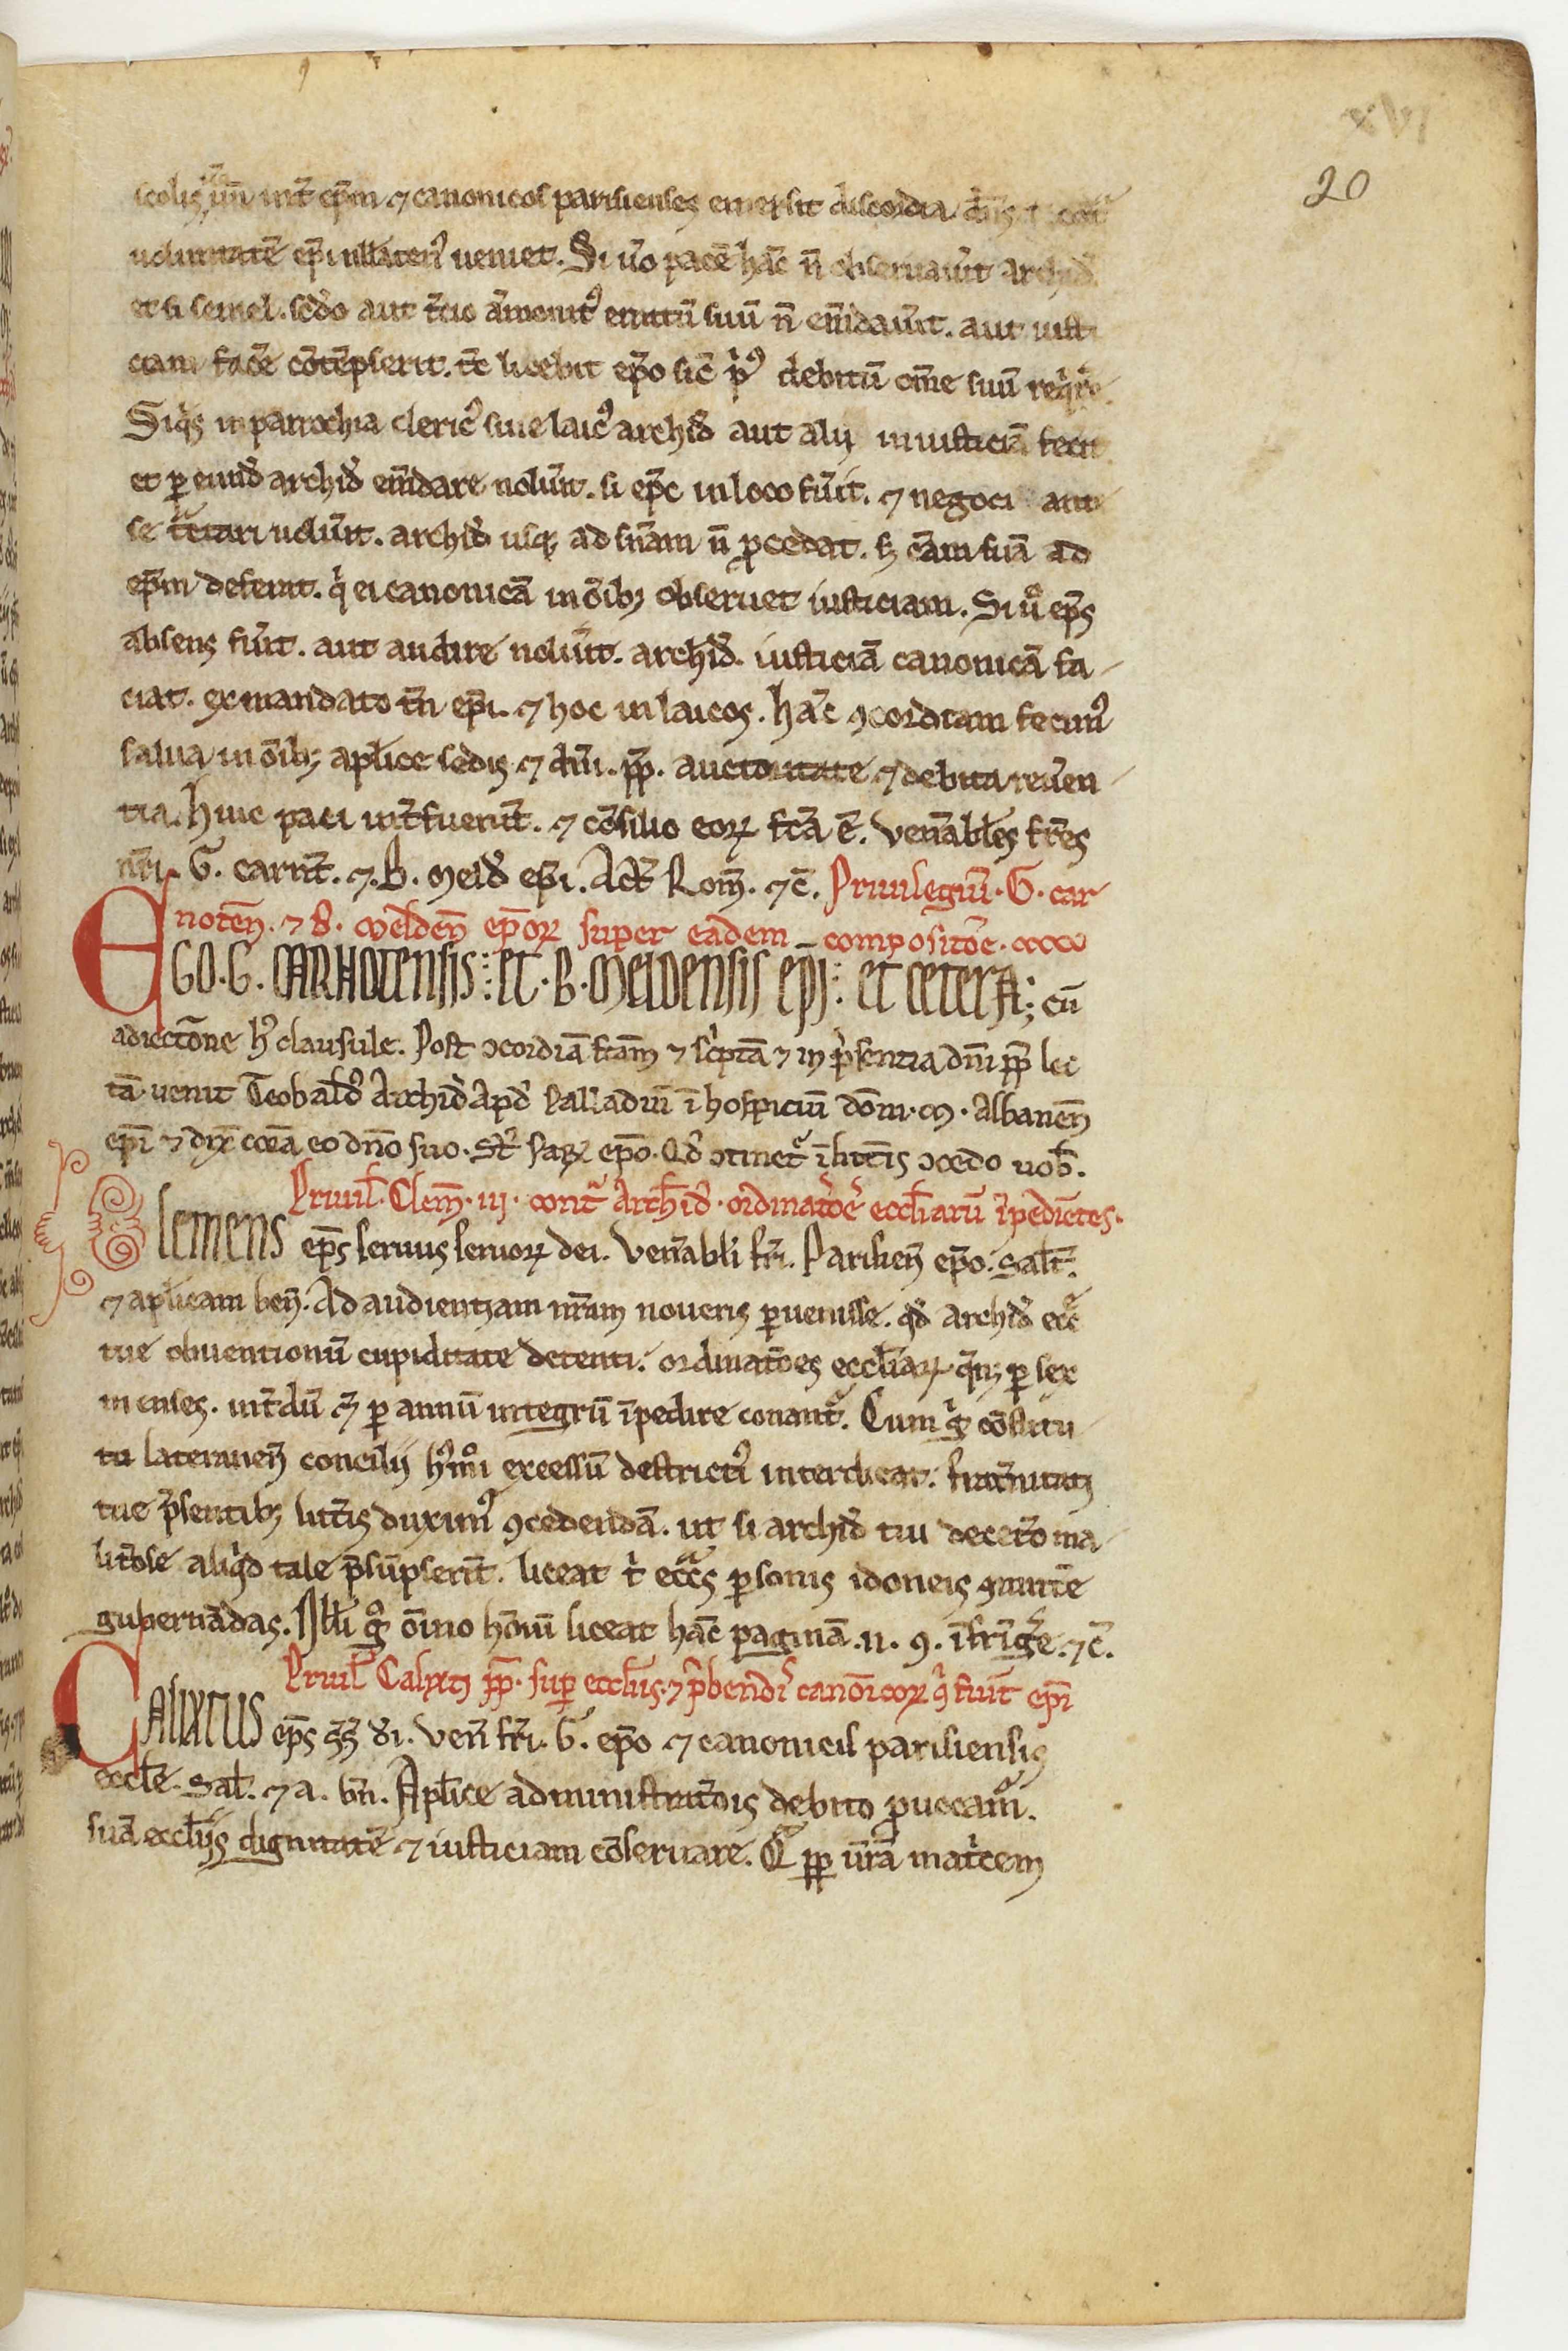 XVI
20
scolis, unde int̄ ep̄m ⁊ canonicos parisienses emersit discordia
uoluntatē ep̄i nllāten᾿ ueniet. Si u᾿o pacē hāc n̄ obseruau᾿it archid᾿
et si semel. sc̄do aut t᾿cio āmonit᾿ erratū suū n̄ em̄dau᾿it. aut iusti
ciam fac̄e cōtēpserit. tc̄ licebit ep̄o sic̄ p᾿᾿ debitū om̄e suū req᾿r᾿e.
Siq᾿s in parrochia cleric᾿ siue laic᾿ archid᾿ aut alij iniusticiā fecit
et ꝑ eund᾿ archid᾿ em̄dare nolu᾿it. si ep̄c in loco fu᾿it. ⁊ negociū ante
se t᾿ctari uolu᾿it. archid᾿ usq; ad sn̄iam n̄ ꝓcedat. sꝫ cām suā ad
ep̄m deferat. q᾿ ei canonicā in ōibꝫ obseruet iusticiam. Si u᾿o ep̄s
absens fu᾿it. aut audire nolu᾿it. archid᾿. iusticiā canonicā fa-
ciat. ex mandato tn̄ ep̄i. ⁊ hoc in laicos. hāc ꝯcordiam fecim᾿
salua in ōibꝫ aplice sedis ⁊ dn̄i. pp̄. auctoritate ⁊ debita reu᾿en-
tia. huic paci int᾿fuerunt. ⁊ cōsilio eoꝝ fc̄a ē. Ven᾿ables fr̄es
nr̄i G. carnt̄. ⁊ B. meld᾿ ep̄i. Act᾿ Rom̄. ⁊c̄. Priuilegiū. G. car
noten̄. ⁊ B. melden̄ ep̄oꝝ super eadem compositōe.
EGO. G. CARNOTENSIS: ET. B. MELDENSIS EP̄I: ET CETERA; cū
adiectōne h᾿ clausule. Post ꝯcordiā fc̄am ⁊ sc᾿ptā ⁊ in p᾿sentia dn̄i pp̄ lec
tā uenit Teobald᾿ Archid᾿ apd᾿ Palladiū ī hospiciū dōni. M. Albanen̄
ep̄i ⁊ dix̄ corā eo dn̄o suo. St᾿ parꝝ ep̄o. Qd᾿ ꝯtinet᾿ ī litt᾿is ꝯcedo uob̄.
Priuil᾿. Clem̄. iij. cont᾿ Archid᾿. ordinatōē eccl̄iarū īpediētes.
Clemens ep̄s seruus seruoꝝ dei. Ven᾿abli fr̄i. Parisien̄ ep̄o. Salt̄.
⁊ aplicam ben̄. Ad audientiam nr̄am noueris ꝑuenisse. qd᾿ archid᾿ ecc̄
tue obuentionū cupiditate detenti. ordinatōes eccl̄iaꝝ q᾿nꝫ ꝑ sex
menses. int᾿dū ꝑ annū integrū īpedire conant᾿. Cum g᾿ cōstitu
tū lateranen̄ concilij h᾿m᾿i excessū destricti᾿ interdicat. frat᾿nitati
tue p̄sentibꝫ litt᾿is duxim᾿ ꝯcedendā. ut si archid᾿ tui de cet᾿o ma-
litōse aliq᾿d tale p̄sūpserit. liceat t᾿ ecc̄s ꝑsonis idoneis ꝯmitte
gubernādas. Nlli g᾿ ōino hōinū liceat hāc paginā. n. ꝯ. īfrīg᾿e. ⁊c̄.
Priuil᾿ Calixti pp̄. sup ecclijs. ⁊ p᾿bendi᾿ canōicoꝝ q᾿ fiūt ep̄i
CALIXTUS ep̄s s᾿s᾿ d᾿i. Ven̄ fr̄i. G. ep̄o ⁊ canonicis parisiensis
eccl̄e. Sal᾿. ⁊ a. bn̄. Aplice administratōis debito ꝓuocam᾿.
suā ecclijs dignitatē ⁊ iusticiam cōseruare. Q᾿ pp̄ ur̄ā mat᾿cem